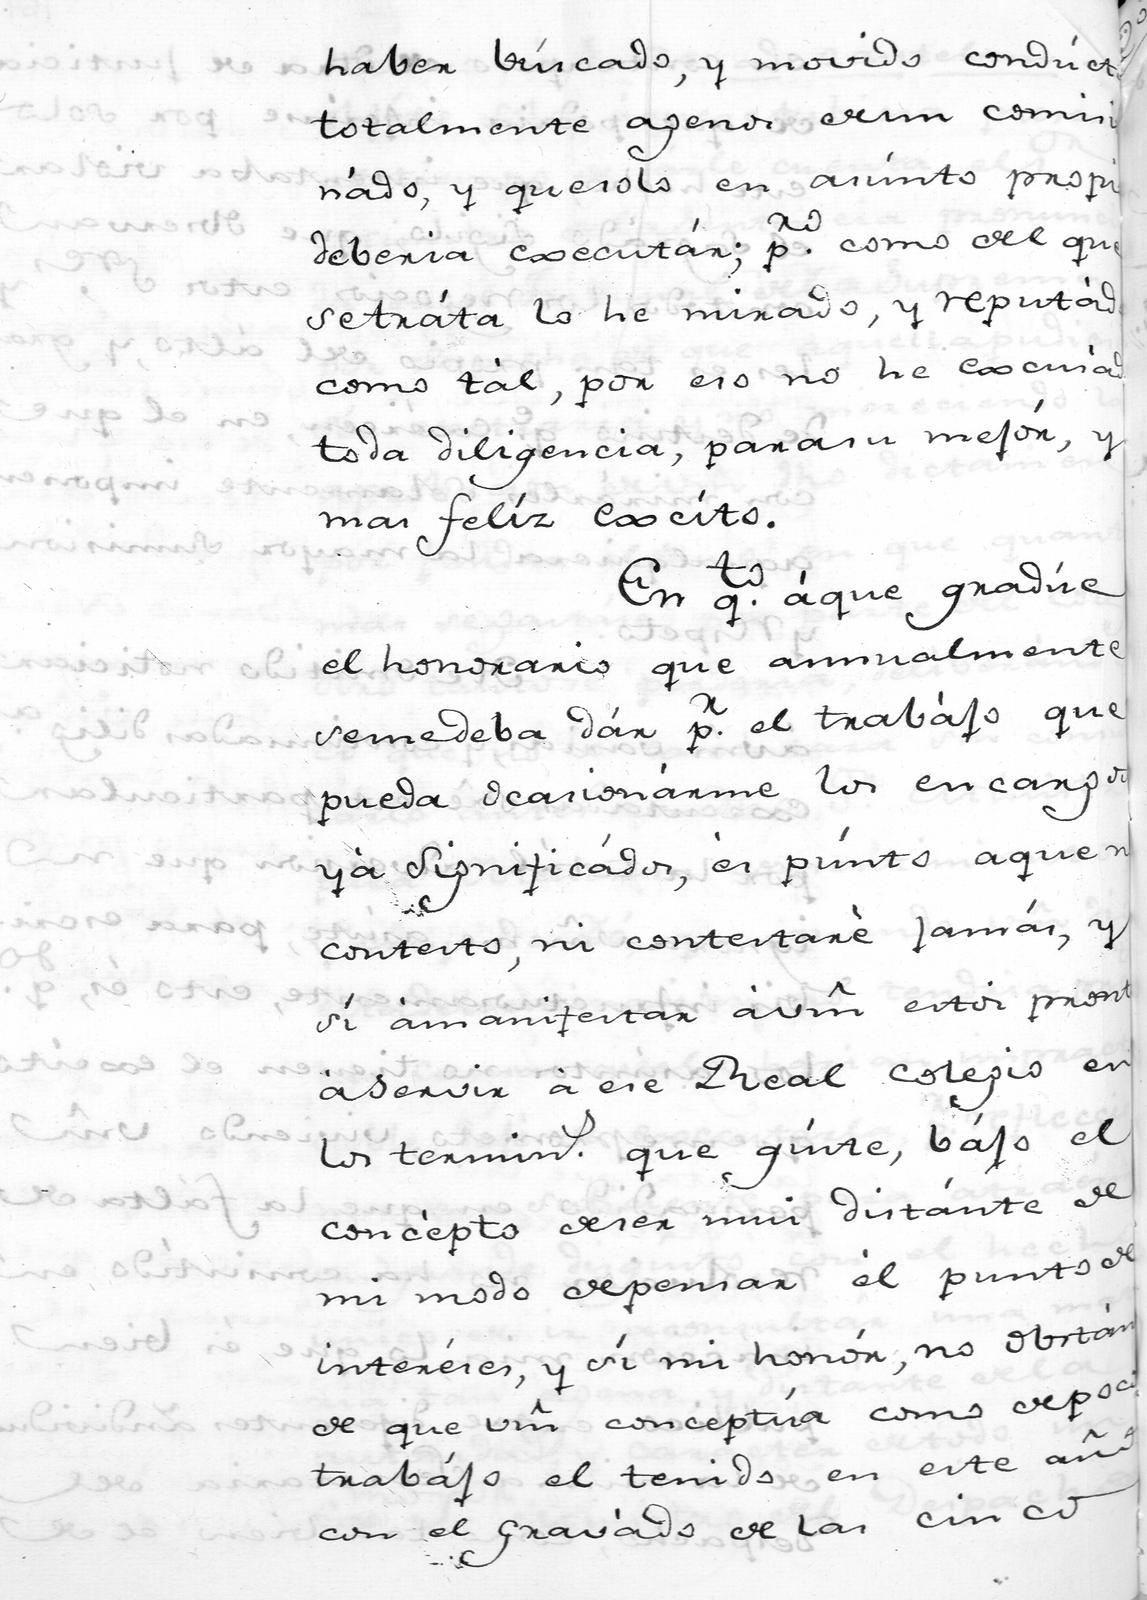 haber búscado, y movido condúct
totalmente agenos deun comisi
nádo, y quesolo en asúnto propi
deberia executár; p.ro como del que
setráta lo he mirado, y reputád
como tàl, por eso no he excusad
toda diligencia, parasu mejór, y
mas felíz excíto.
En q.to áque gradúe
el honorario que annualmente
semedeba dár p.r el trabájo que
pueda ocasionárme los encargos
yà significádos, ès púnto aque n
contesto, ni contestarè jamás, y
sí àmanifestar àvm̃ estoi pront
àservir à ese Real Colegio en
los termin.s que gúste, bájo el
concèpto deser mui distánte de
mi modo depensar èl punto de
interéses, y sí mi honór, no obstán
de que vm̃ conceptúa como depoco
trabájo el tenido en este año
con el gravàdo de las cinco